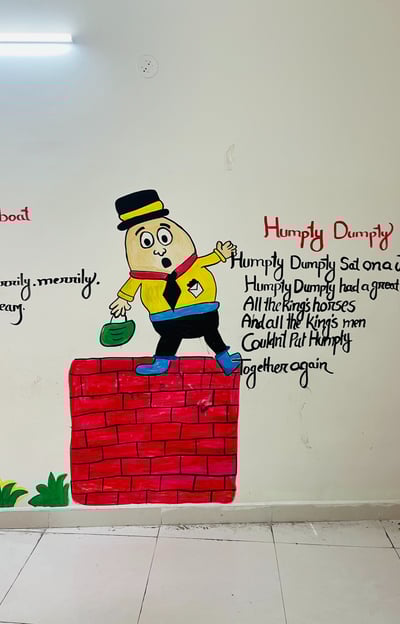 boat
merrily.
Humpty Dumpty
Humpty Dumpty Sat on a
Humpty Dumpty had a great
All the King's horses
And all the King's men
Couldn't Put Humpty
Together again